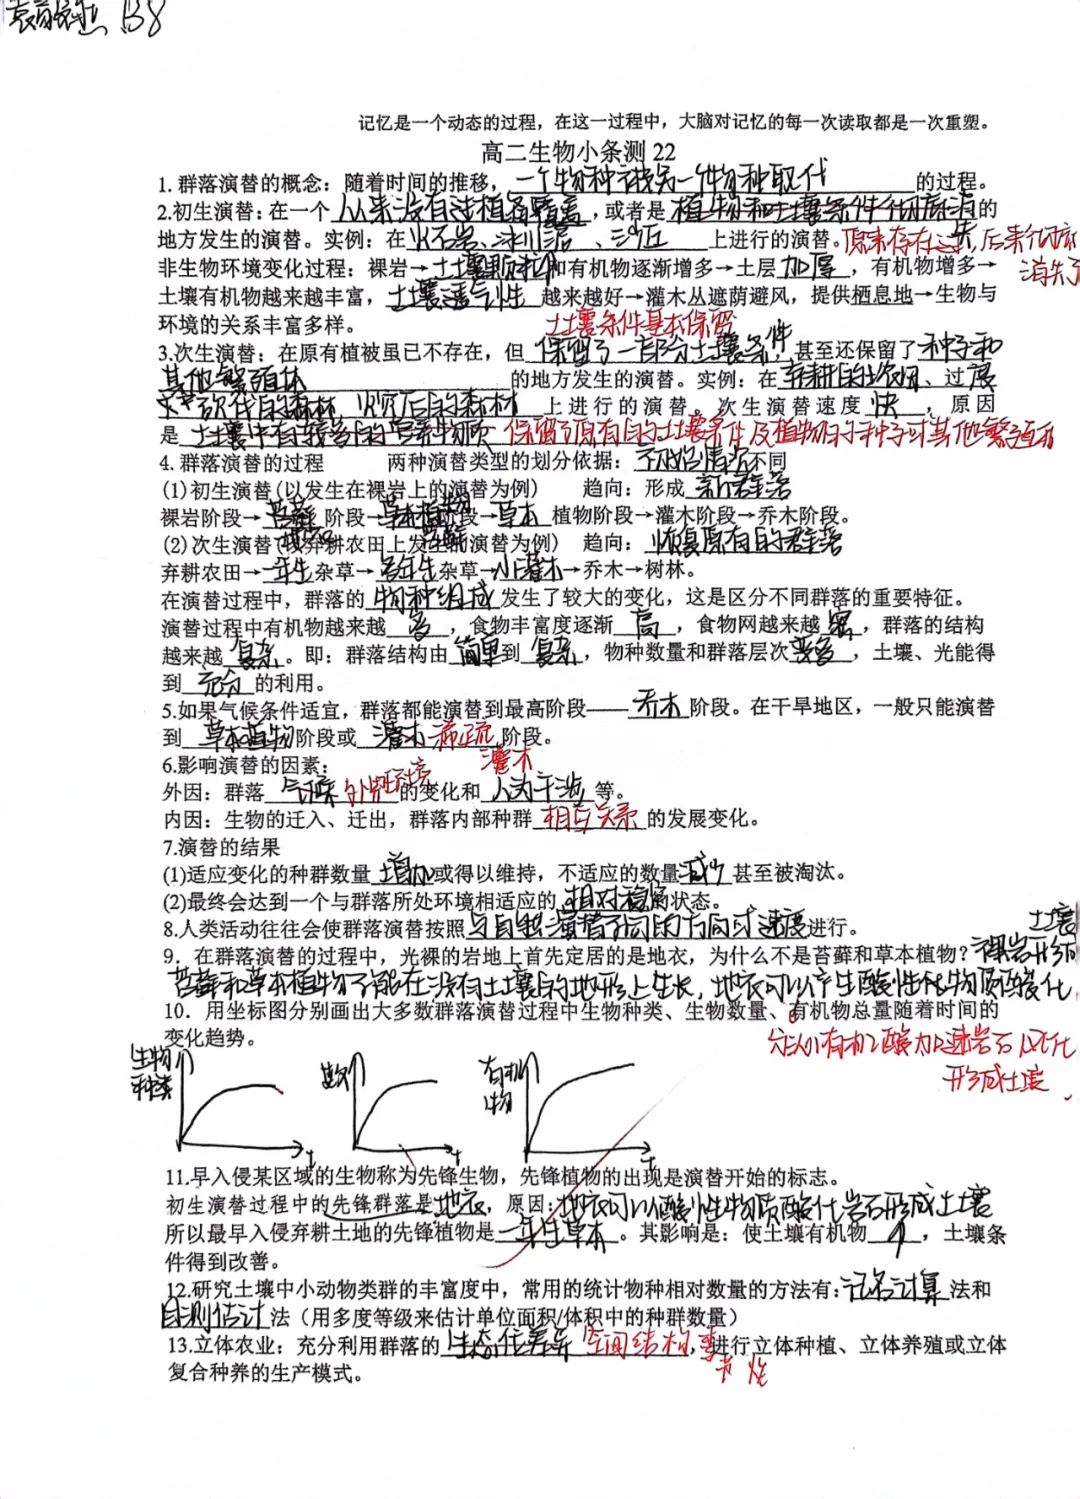 B8
记忆是一个动态的过程，在这一过程中，大脑对记忆的每一次读取都是一次重塑。
高二生物小条测 22
1. 群落演替的概念：随着时间的推移，一个物种被另一个物种取代的过程。
2.初生演替：在一个从来没有过植被覆盖，或者是植物和土壤条件彻底消的
地方发生的演替。实例：在火山岩、冰川泥、沙丘上进行的演替。原来存在过 后来彻底
消失了
非生物环境变化过程：裸岩→土壤颗粒和有机物逐渐增多→土层加厚，有机物增多→
土壤有机物越来越丰富，土壤透气性越来越好→灌木丛遮荫避风，提供栖息地→生物与
环境的关系丰富多样。 土壤条件基本保留
3.次生演替：在原有植被虽已不存在，但保留了一部分土壤条件，甚至还保留了种子和
其他繁殖体的地方发生的演替。实例：在弃耕的农田、过度
砍伐的森林、火灾后的森林上进行的演替。次生演替速度快，原因
是土壤中有较多的营养物质 保留了原有的土壤条件及植物的种子或其他繁殖体
4. 群落演替的过程 两种演替类型的划分依据：不同
(1)初生演替(以发生在裸岩上的演替为例) 趋向：形成新群落
裸岩阶段→苔藓阶段→草本植物阶段→草本植物阶段→灌木阶段→乔木阶段。
地衣 苔藓
(2)次生演替(以弃耕农田上发生的演替为例) 趋向：恢复原有的群落
弃耕农田→一年生杂草→多年生杂草→小灌木→乔木→树林。
在演替过程中，群落的物种组成发生了较大的变化，这是区分不同群落的重要特征。
演替过程中有机物越来越多，食物丰富度逐渐高，食物网越来越密，群落的结构
越来越复杂。即：群落结构由简单到复杂，物种数量和群落层次变多，土壤、光能得
到充分的利用。
5.如果气候条件适宜，群落都能演替到最高阶段——乔木阶段。在干旱地区，一般只能演替
到草本植物阶段或灌木 稀疏阶段。
灌木
6.影响演替的因素：
外因：群落气候 外界环境的变化和人为干涉等。
内因：生物的迁入、迁出，群落内部种群相互关系的发展变化。
7.演替的结果
(1)适应变化的种群数量增加或得以维持，不适应的数量减少甚至被淘汰。
(2)最终会达到一个与群落所处环境相适应的相对稳定的状态。
8.人类活动往往会使群落演替按照与自然演替不同的方向或速度进行。
土壤
9．在群落演替的过程中，光裸的岩地上首先定居的是地衣，为什么不是苔藓和草本植物？裸岩形成
苔藓和草本植物不能在没有土壤的地形上生长，地衣可以产生酸性化物质酸化
10．用坐标图分别画出大多数群落演替过程中生物种类、生物数量、有机物总量随着时间的
变化趋势。
分泌有机酸加速岩石风化
形成土壤
生物种类 t
数 t
有机物 t
11.早入侵某区域的生物称为先锋生物，先锋植物的出现是演替开始的标志。
初生演替过程中的先锋群落是地衣，原因：地衣可以酸性物质酸化岩石形成土壤
所以最早入侵弃耕土地的先锋植物是一年生草本。其影响是：使土壤有机物↑，土壤条
件得到改善。
12.研究土壤中小动物类群的丰富度中，常用的统计物种相对数量的方法有：记名计算法和
目测估计法（用多度等级来估计单位面积/体积中的种群数量）
13.立体农业：充分利用群落的生态位差异 空间结构 季，进行立体种植、立体养殖或立体
节性
复合种养的生产模式。